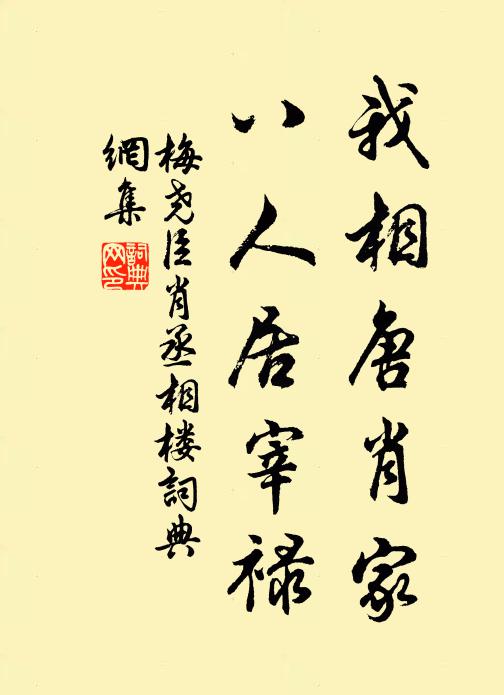 我相唐肖家
八人居宰禄
梅尧臣肖丞相楼詞典
網集
詞典
网印